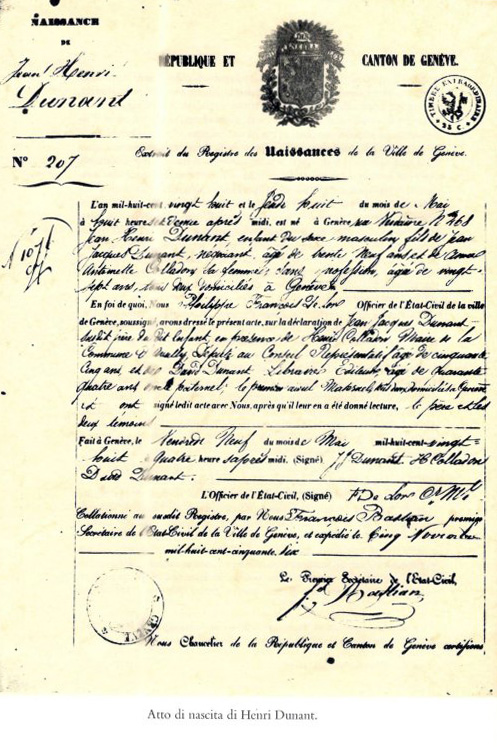 NAISSANCE
DE
Jean Henri
Dunant
N° 207
RÉPUBLIQUE ET CANTON DE GENÈVE.
TIMBRE EXTRAORDINAIRE
Extrait du Registre des Naissances de la Ville de Genève.
L'an mil-huit-cent vingt huit et le Jeudi huit du mois de Mai
à huit heures et demie après midi, est né à Genève, rue Verdaine N° 268
Jean Henri Dunant, enfant du sexe masculin fils de Jean
Jacques Dunant, négociant, âgé de trente neuf ans et de Anne
Antoinette Colladon sa femme, sans profession, âgée de vingt
sept ans, tous deux domiciliés à Genève
En foi de quoi, Nous Philippe François De Lor Officier de l'État-Civil de la ville
de Genève, soussigné, avons dressé le présent acte, sur la déclaration de Jean Jacques Dunant
susdit père du dit Enfant, en présence de Henri Colladon Maire de la
Commune d' Député au Conseil Représentatif âgé de cinquante
cinq ans, et de David Dunant Libraire âgé de quarante
quatre ans oncle paternel; le premier ayeul Maternel, domiciliés à Genève
et ont signé ledit acte avec Nous, après qu'il leur en a été donné lecture, le père et les
deux témoins
Fait à Genève, le Vendredi Neuf du mois de Mai mil-huit-cent-vingt-
huit à quatre heures après midi. (Signé) JJ Dunant H Colladon
David Dunant.
L'Officier de l'État-Civil, (Signé) F De Lor
Collationné au susdit Registre, par Nous François Bastian, premier
Secrétaire de l'État-Civil de la Ville de Genève, et expédié le Cinq Novembre
mil-huit-cent-cinquante six
Le Premier Secrétaire de l'État-Civil,
Bastian
GENÈVE
Nous Chancelier de la République et Canton de Genève certifions
Atto di nascita di Henri Dunant.